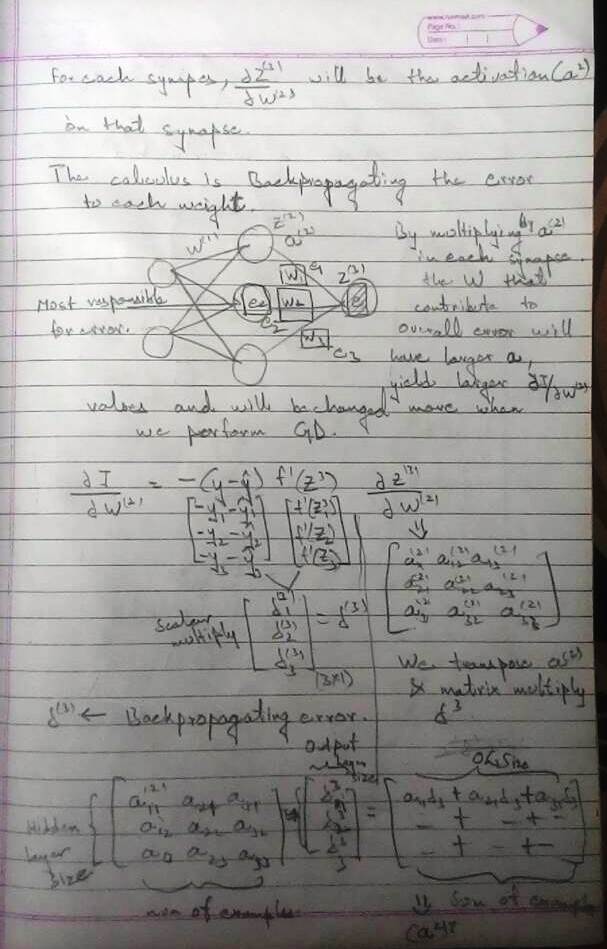 www.runmat.com
Page No.
Date:
For each synapses, ∂Z⁽³⁾/∂W⁽²⁾ will be the activation (a²)
on that synapse.
The calculus is Backpropagating the error
to each weight.
W⁽¹⁾ Z⁽²⁾ a⁽²⁾
W₁ e₁ Z⁽³⁾
e₂ W₂ e
e₂
W₃ e₃
Most responsible
for error.
By multiplying by a⁽²⁾
in each synapse
the W that
contribute to
overall error will
have larger a,
yield larger ∂J/∂W⁽²⁾
values and will be changed more when
we perform GD.
∂J/∂W⁽²⁾ = -(y-ŷ) f'(Z³) ∂Z⁽³⁾/∂W⁽²⁾
[-y₁-ŷ₁ [f'(Z₁³) ⇓
-y₂-ŷ₂ f'(Z₂)
-y₃-ŷ₃] f'(Z₃)]
[a₁₁⁽²⁾ a₁₂⁽²⁾ a₁₃⁽²⁾
a₂₁⁽²⁾ a₂₂⁽²⁾ a₂₃⁽²⁾
a₃₁⁽²⁾ a₃₂⁽²⁾ a₃₃⁽²⁾]
Scalar
multiply
[δ₁⁽³⁾
δ₂⁽³⁾ = δ⁽³⁾
δ₃⁽³⁾]
(3×1)
We transpose a⁽²⁾
& matrix multiply
δ³
δ⁽³⁾ ← Backpropagating error.
Output
layer
size
OL Size
Hidden
Layer
Size
[a₁₁⁽²⁾ a₂₁ a₃₁
a₁₂ a₂₂ a₃₂
a₁₃ a₂₃ a₃₃]
=
- + - + -
- + - + -
num of examples
⇓